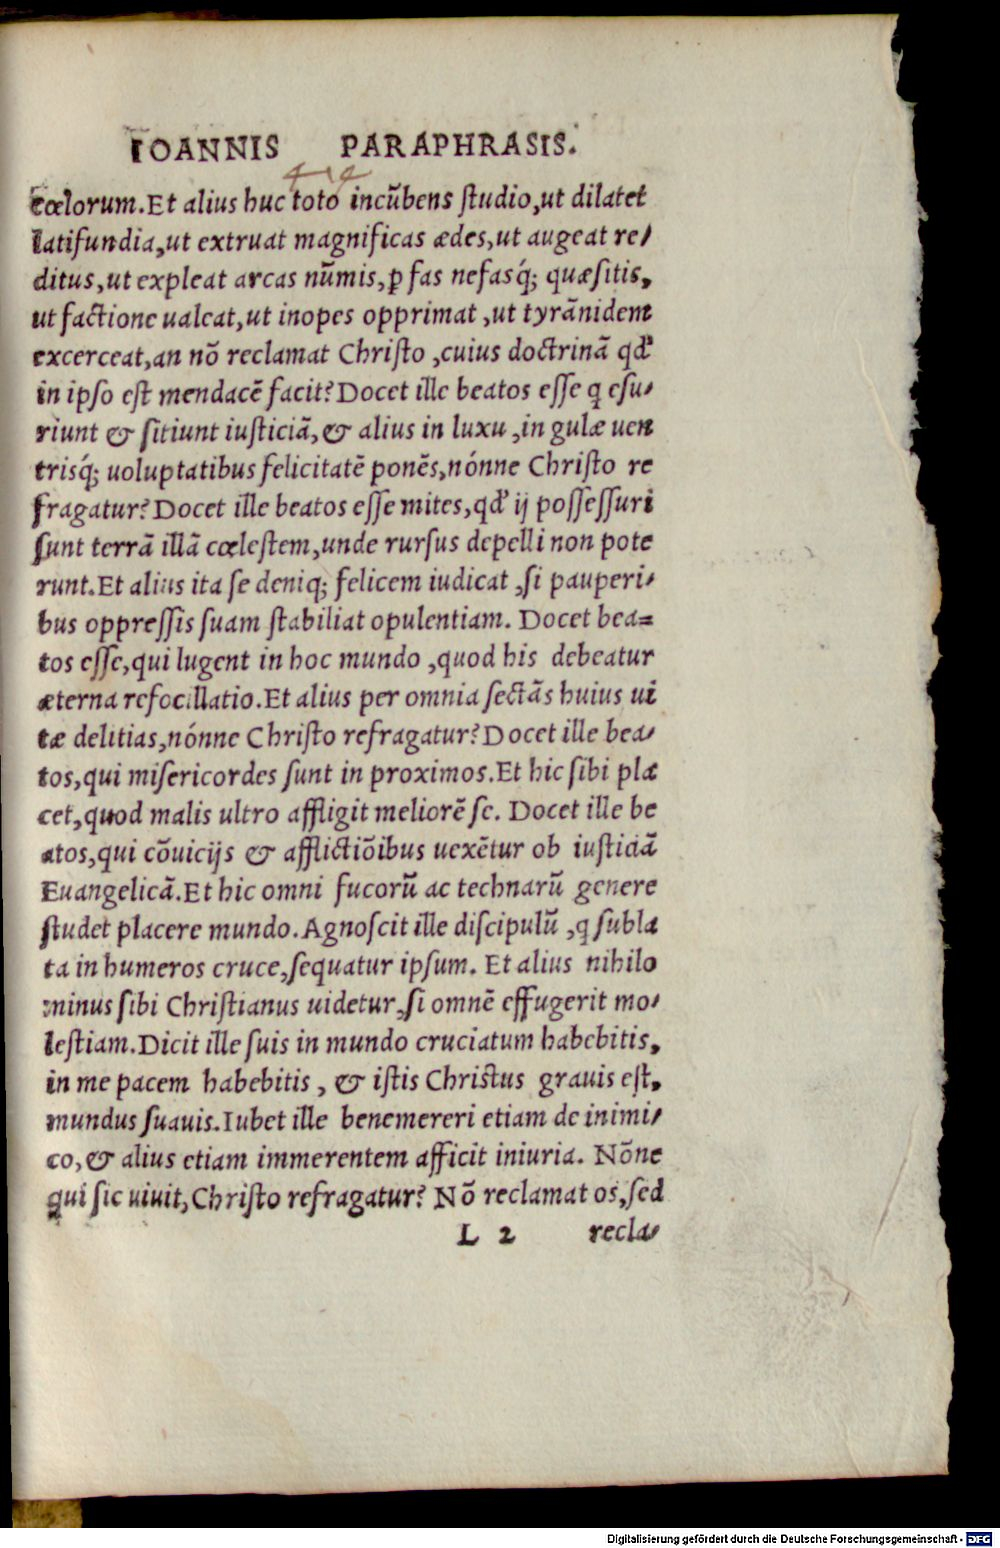 IOANNIS PARAPHRASIS.
cœlorum.Et alius huc toto incũbens ſtudio,ut dilatet
latifundia,ut extruat magnificas ædes,ut augeat re/
ditus,ut expleat arcas nũmis,ꝑ fas nefasq́; quæſitis,
ut factione ualeat,ut inopes opprimat ,ut tyrãnidem
excerceat,an nõ reclamat Chriſto ,cuius doctrinã qđ
in ipſo eſt mendacẽ facit? Docet ille beatos eſſe q eſu/
riunt & ſitiunt iuſticiã,& alius in luxu ,in gulæ uen
trisq́; uoluptatibus felicitatẽ ponẽs,nónne Chriſto re
fragatur? Docet ille beatos eſſe mites,qđ ij poſſeſſuri
ſunt terrã illã cœleſtem,unde rurſus depelli non pote
runt.Et alius ita ſe deniq; felicem iudicat ,ſi pauperi/
bus oppreſſis ſuam ſtabiliat opulentiam. Docet bea=
tos eſſe,qui lugent in hoc mundo ,quod his debeatur
æterna refocillatio.Et alius per omnia ſectãs huius ui
tæ delitias,nónne Chriſto refragatur? Docet ille bea/
tos,qui miſericordes ſunt in proximos.Et hic ſibi plæ
cet,quod malis ultro affligit meliorẽ ſe. Docet ille be
atos,qui cõuicijs & afflictiõibus uexẽtur ob iuſticiã
Euangelicã.Et hic omni fucorũ ac technarũ genere
ſtudet placere mundo.Agnoſcit ille diſcipulũ ,q ſubla
ta in humeros cruce,ſequatur ipſum. Et alius nihilo
minus ſibi Chriſtianus uidetur,ſi omnẽ effugerit mo/
leſtiam.Dicit ille ſuis in mundo cruciatum habebitis,
in me pacem habebitis , & iſtis Chriſtus grauis eſt,
mundus ſuauis.Iubet ille benemereri etiam de inimi/
co,& alius etiam immerentem afficit iniuria. Nõne
qui ſic uiuit,Chriſto refragatur? Nõ reclamat os,ſed
L 2 recla/
Digitalisierung gefördert durch die Deutsche Forschungsgemeinschaft - DFG